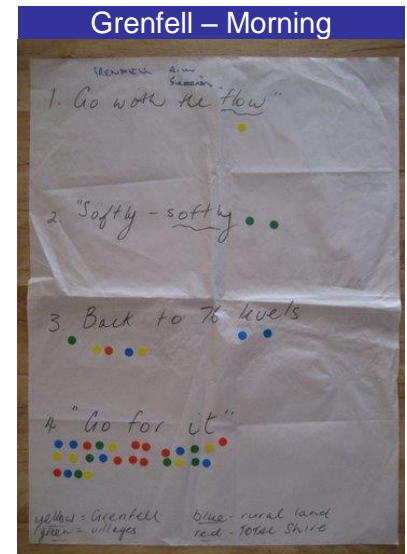 Grenfell – Morning
GRENFELL A.M
Session
1. Go with the "flow"
2. "Softly - softly
3. Back to 76 levels
4. "Go for it"
yellow = Grenfell blue - rural land
green = villages red - TOTAL Shire